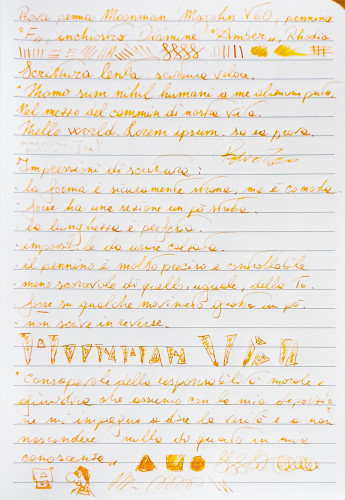 Prova penna Moonman / Majohn V60, pennino
"F", inchiostro Diamine "Amber", Rhodia
Scrittura lenta. scrittura veloce.
"Homo sum nihil humani a me alienum puto."
Nel mezzo del cammin di nostra vita.
Hello world. Lorem ipsum. sa sa prova.
Impressioni di scrittura:
- la forma è sicuramente strana, ma è comoda.
- forse ha una sezione un pò stretta.
- la lunghezza è perfetta.
- impossibile da usare calzata.
- il pennino è molto preciso e controllabile
meno scorrevole di quello, uguale, della T0.
forse su qualche movimento gratta un pò.
- non scrive in reverse.
MOONMAN V60
"Consapevole della responsabilità morale e
giuridica che assumo con la mia deposizione
mi impegno a dire la verità e a non
nascondere nulla di quanto in mia
conoscenza"